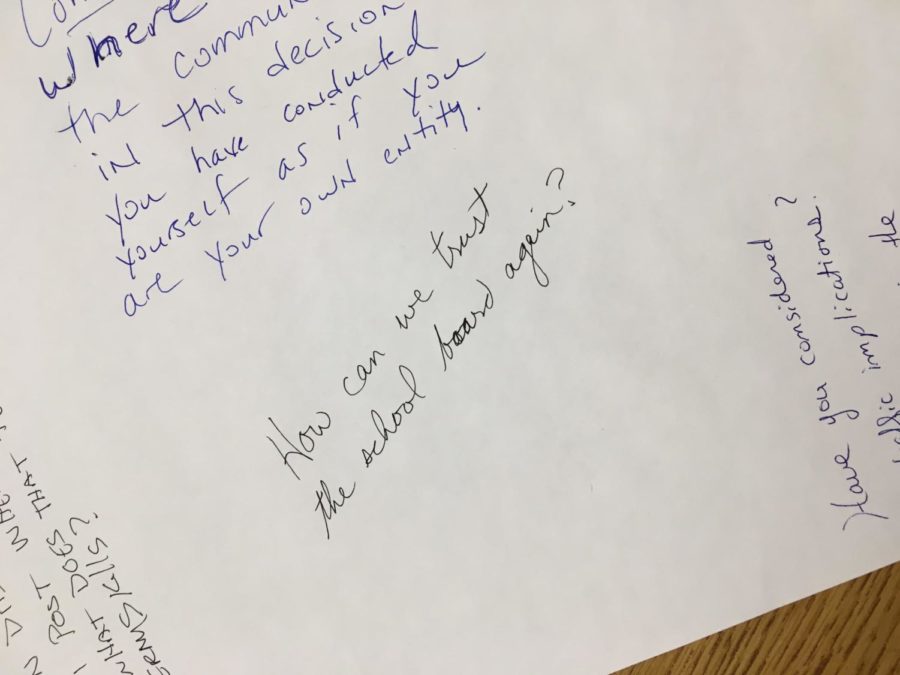 Where
the commun
in this decision
you have conducted
yourself as if you
are your own entity.
How can we trust
the school board again?
Have you considered?
implications.
the
POST DOES THAT
WHAT DOES
SKILLS?